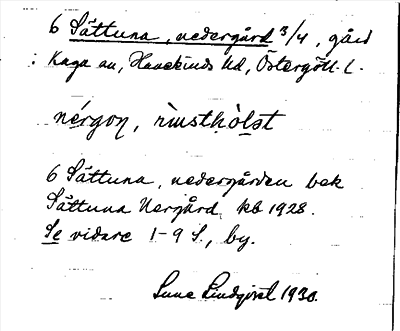 6 Sättuna, nedergård 3/4, gård
i Kaga sn, Hanekinds hd, Östergötl. l.
nérgoŋ, rìnsthòlst
6 Sättuna, nedergården bek
Sättuna Nergård kb 1928.
Se vidare 1-9 S., by.
Sune Lindqvist 1930.